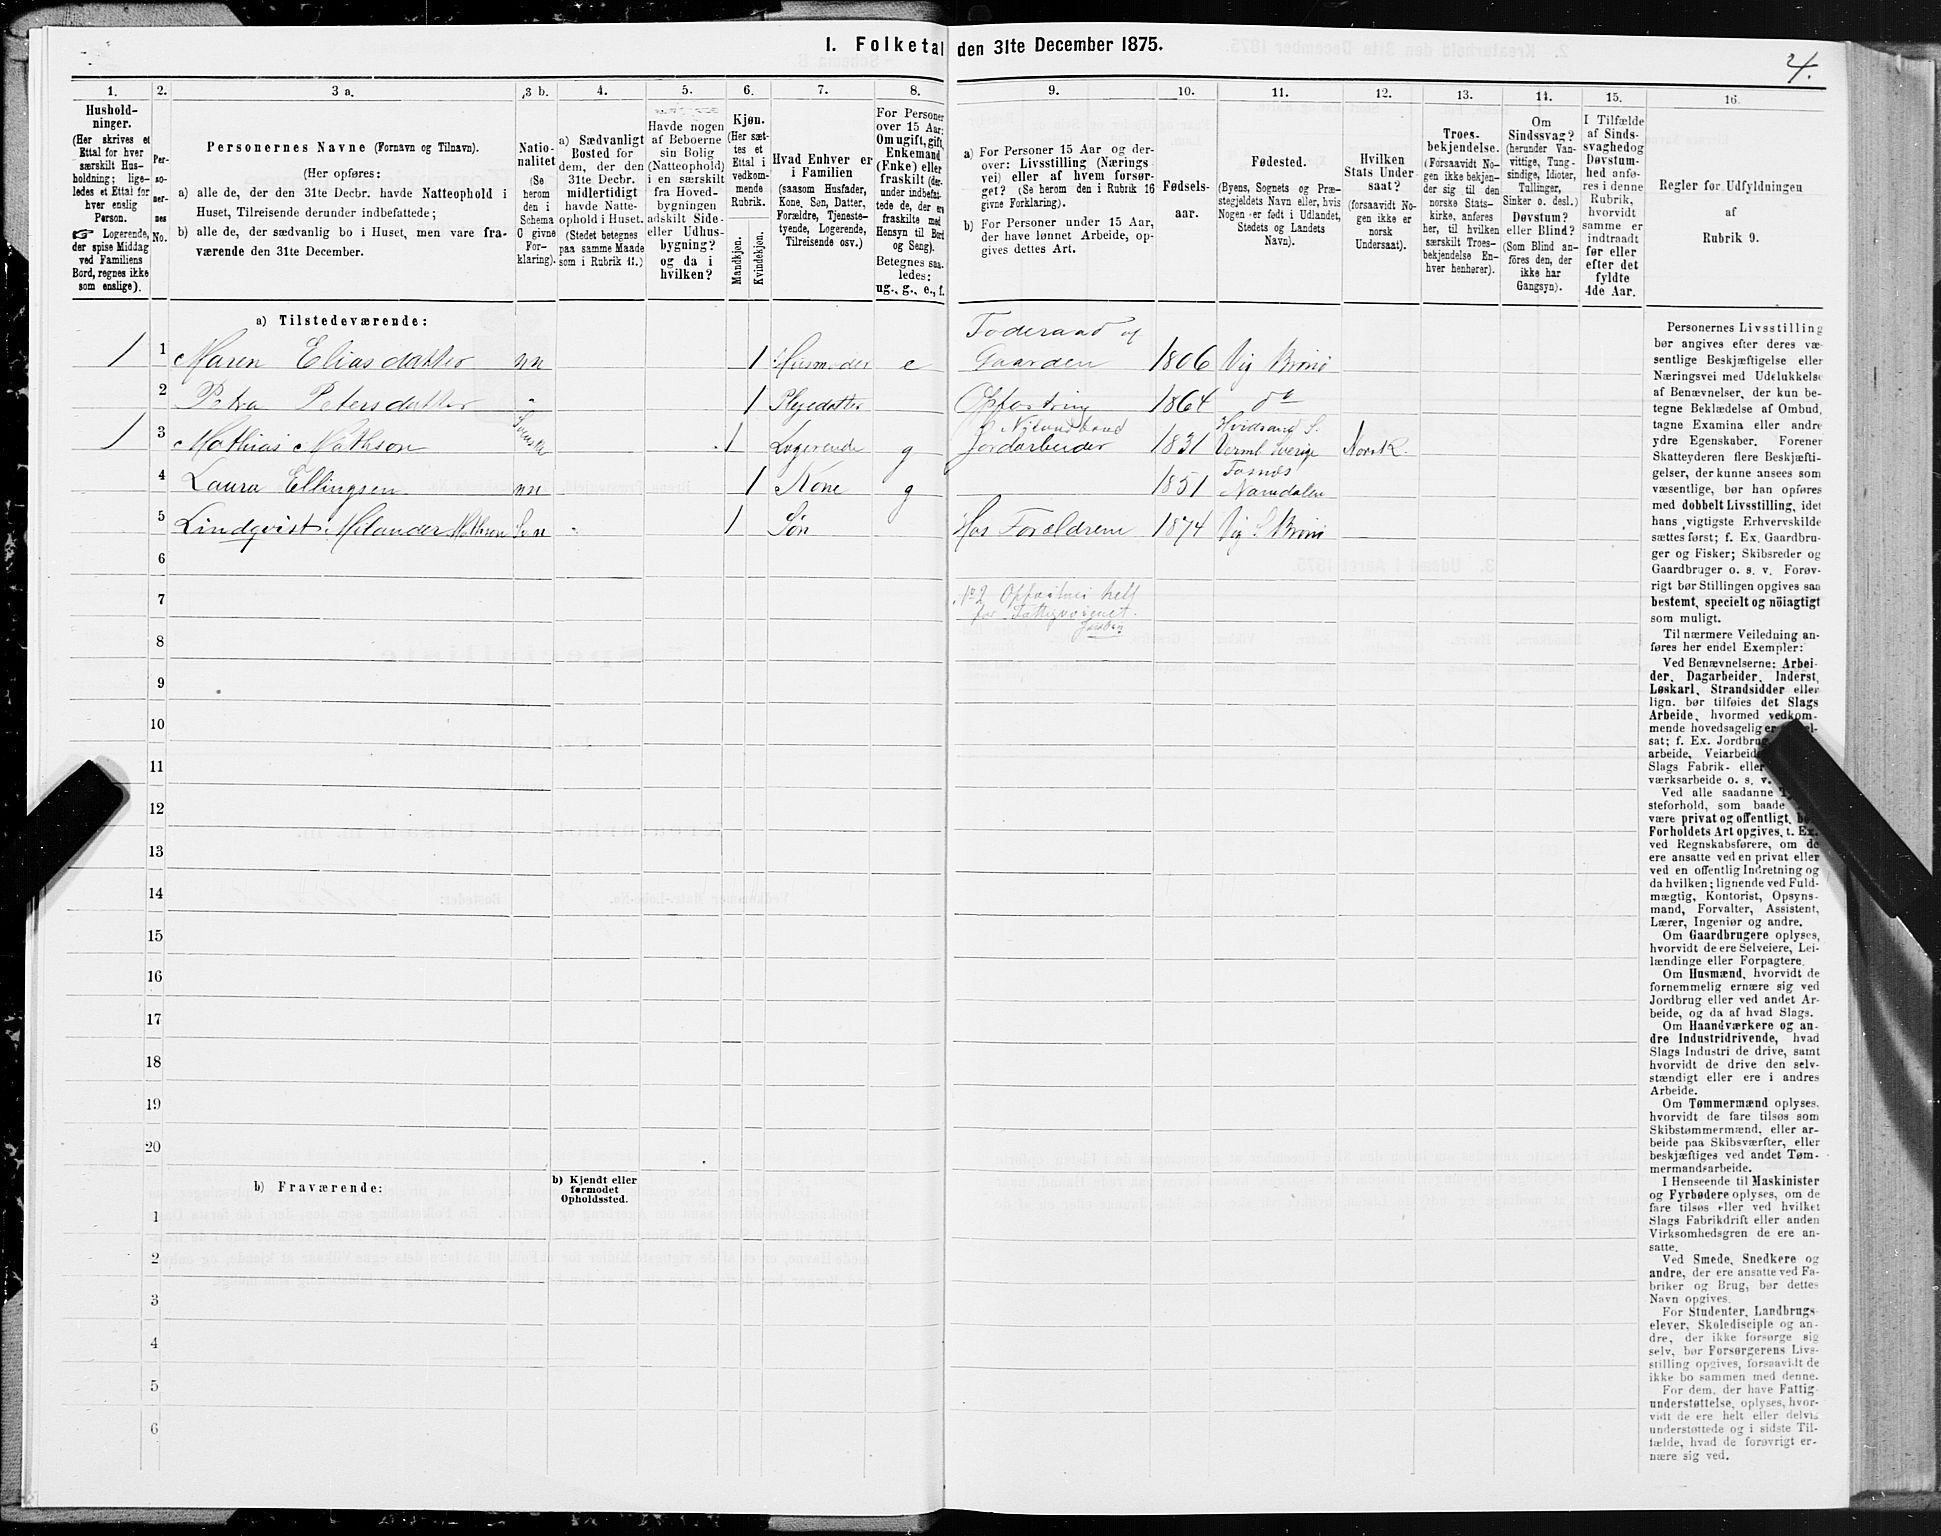 I. Folketal den 31te December 1875.
4.
1.
Hushold-
ninger.
(Her skrives et
Ettal for hver
særskilt Hus-
holdning; lige-
ledes et Ettal for
hver enslig
Person.
☞ Logerende,
der spise Middag
ved Familiens
Bord, regnes ikke
som enslige).
2.
Per-
so-
ner-
nes
No.
3 a.
Personernes Navne (Fornavn og Tilnavn).
(Her opføres:
a) alle de, der den 31te Decbr. havde Natteophold i
Huset, Tilreisende derunder indbefattede;
b) alle de, der sædvanlig bo i Huset, men vare fra-
værende den 31te December.
3 b.
Natio-
nalitet
(Se
herom
den i
Schema
C givne
For-
klaring).
4.
a) Sædvanligt
Bosted for
dem, der den
31te Decbr.
midlertidigt
havde Natte-
ophold i Huset.
(Stedet betegnes
paa samme Maade
som i Rubrik 11.)
5.
Havde nogen
af Beboerne
sin Bolig
(Natteophold)
i en særskilt
fra Hoved-
bygningen
adskilt Side-
eller Udhus-
bygning?
og da i
hvilken?
6.
Kjøn.
(Her sæt-
tes et
Ettal i
vedkom-
mende
Rubrik.
Mandkjøn.
Kvindekjøn.
7.
Hvad Enhver er
i Familien
(saasom Husfader,
Kone, Søn, Datter,
Forældre, Tjeneste-
tyende, Logerende,
Tilreisende osv.)
8.
For Personer
over 15 Aar:
Om ugift, gift,
Enkemand
(Enke) eller
fraskilt (der-
under indbefat-
tede de, der ere
fraskilte med
Hensyn til Bord
og Seng).
Betegnes saa-
ledes:
ug., g., e., f.
9.
a) For Personer 15 Aar og der-
over: Livsstilling (Nærings
vei) eller af hvem forsør-
get? (Se herom den i Rubrik 16
givne Forklaring).
b) For Personer under 15 Aar,
der have lønnet Arbeide, op-
gives dettes Art.
10.
Fødsels-
aar.
11.
Fødested.
(Byens, Sognets og Præ-
stegjeldets Navn eller, hvis
Nogen er født i Udlandet,
Stedets og Landets
Navn).
12.
Hvilken
Stats Under
saat?
(forsaavidt No-
gen ikke er
norsk
Undersaat).
13.
Troes-
bekjendelse.
(Forsaavidt No-
gen ikke bekjen-
der sig til den
norske Stats-
kirke, anføres
her, til hvilken
særskilt Troes-
bekjendelse En-
hver henhører).
14.
Om
Sindssvag?
(herunder Van-
vittige, Tung-
sindige, Idioter,
Tullinger,
Sinker o. desl.)
Døvstum?
eller Blind?
(Som Blind an-
føres den, der
ikke har
Gangsyn).
15.
I Tilfælde
af Sinds-
svaghed og
Døvstum-
hed anfø-
res i denne
Rubrik,
hvorvidt
samme er
indtraadt
før eller
efter det
fyldte
4de Aar.
16.
Regler for Udfyldningen
af
Rubrik 9.
a) Tilstedeværende:
Foderaad af
1 1 Maren Eliasdatter nn 1 Husmoder e Gaarden 1806 Vig Brønø
2 Petra Petersdatter " 1 Plejedatter 1864 do
Hvidsand S.
1 3 Mathias Mathson Svensk 1 Logerende g Jordarbeider 1831 Verml Sverige Norsk.
4 Laura Ellingsen nn 1 Kone g 1851 Namdalen
5 Lindqvist Milander Mathson 1 Søn Hos Forældrene 1874 Vig S. Brønø
6
7 No 2 helt
for Fattigvæsenet.
8
9
10
11
12
13
14
15
16
17
18
19
20
b) Fraværende:
b) Kjendt eller
formodet
Opholdssted.
1
2
3
4
5
6
Personernes Livsstilling
bør angives efter deres væ-
sentlige Beskjæftigelse eller
Næringsvei med Udelukkelse
af Benævnelser, der kun be-
tegne Beklædelse af Ombud,
tagne Examina eller andre
ydre Egenskaber. Forener
Skatteyderen flere Beskjæfti-
gelser, der kunne ansees som
væsentlige, bør han opføres
med dobbelt Livsstilling, idet
hans vigtigste Erhvervskilde
sættes først; f. Ex. Gaardbru-
ger og Fisker; Skibsreder og
Gaardbruger o. s. v. Forøv-
rigt bør Stillingen opgives saa
bestemt, specielt og nöiagtigt
som muligt.
Til nærmere Veiledning an-
føres her endel Exempler:
Ved Benævnelserne: Arbei-
der, Dagarbeider, Inderst,
Løskarl, Strandsidder eller
lign. bør tilføies det Slags
Arbeide, hvormed vedkom-
mende hovedsagelig er
sat; f. Ex. Jordbrug
arbeide, Veiarbeide
Slags Fabrik- eller
værksarbeide o. s. v.
Ved alle saadanne
steforhold, som baade
være privat og offentligt,
Forholdets Art opgives, t. Ex.
ved Regnskabsførere, om de
ere ansatte ved en privat eller
ved en offentlig Indretning og
da hvilken; lignende ved Fuld-
mægtig, Kontorist, Opsyns-
mand, Forvalter, Assistent,
Lærer, Ingeniør og andre.
Om Gaardbrugere oplyses,
hvorvidt de ere Selveiere, Lei-
lændinge eller Forpagtere.
Om Husmænd, hvorvidt de
fornemmelig ernære sig ved
Jordbrug eller ved andet Ar-
beide, og da af hvad Slags.
Om Haandværkere og an-
dre Industridrivende, hvad
Slags Industri de drive, samt
hvorvidt de drive den selv-
stændigt eller ere i andres
Arbeide.
Om Tømmermænd oplyses,
hvorvidt de fare tilsøs som
Skibstømmermænd, eller ar-
beide paa Skibsværfter, eller
beskjæftiges ved andet Tøm-
mermandsarbeide.
I Henseende til Maskinister
og Fyrbødere oplyses, om de
fare tilsøs eller ved hvilket
Slags Fabrikdrift eller anden
Virksomhedsgren de ere an-
satte.
Ved Smede, Snedkere og
andre, der ere ansatte ved Fa-
briker og Brug, bør dettes
Navn opgives.
For Studenter, Landbrugs-
elever, Skoledisciple og an-
dre, der ikke forsørge sig
selv, bør Forsørgerens Livs-
stilling opgives, forsaavidt de
ikke bo sammen med denne.
For dem, der have Fattig-
understøttelse, oplyses, hvor-
vidt de ere helt eller delvis
understøttede og i sidste Til-
fælde, hvad de forøvrigt er-
nære sig ved.